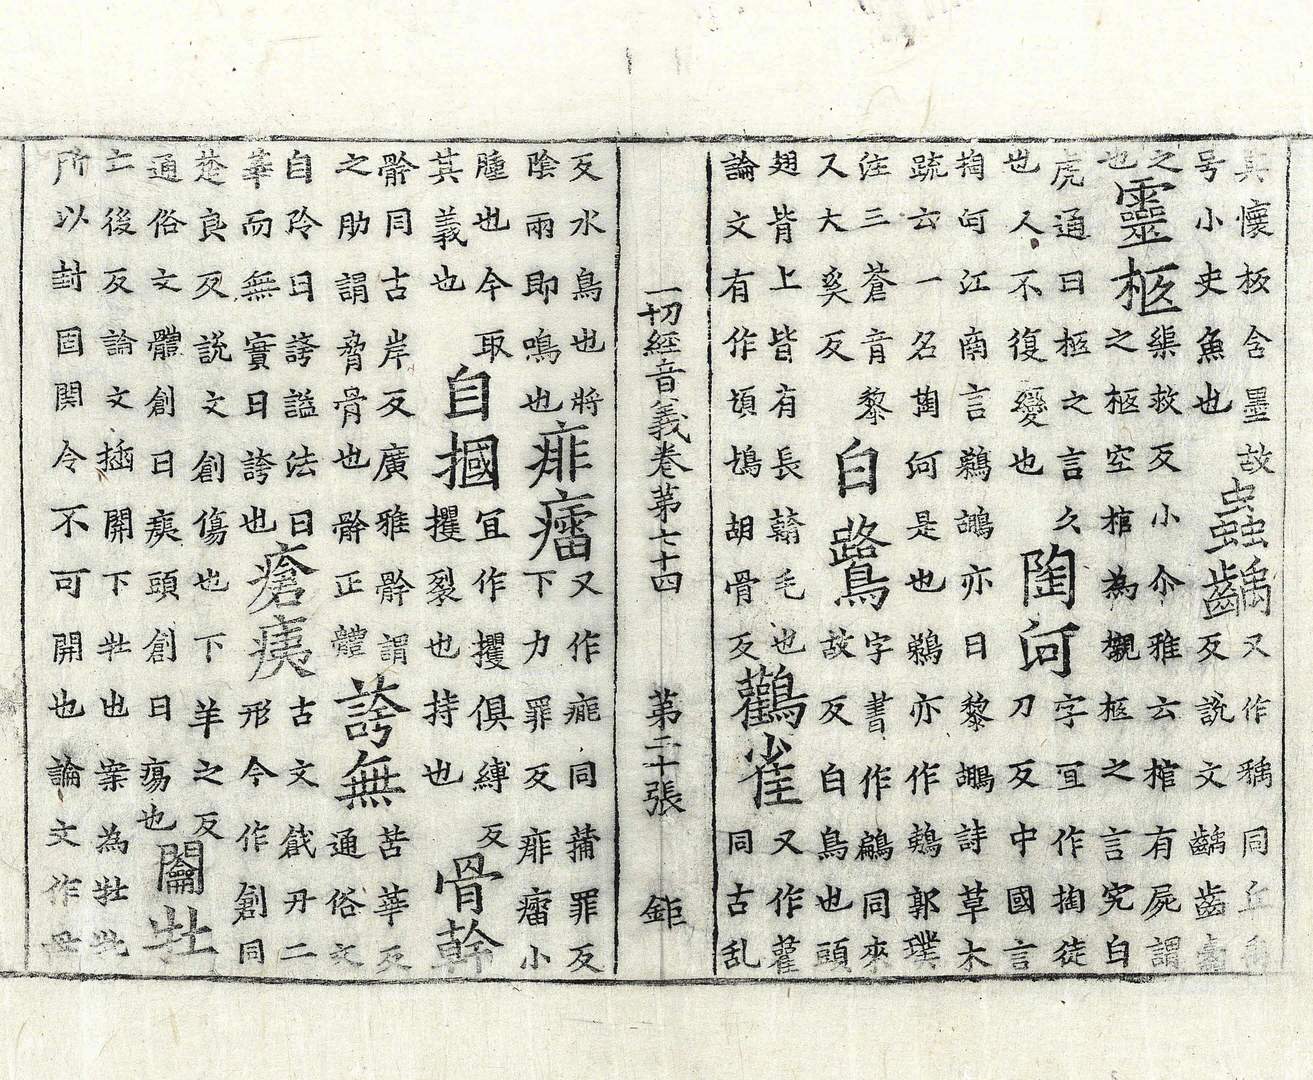 其懷板含墨故
号小史魚也
蟲齲
又作䊈同丘禹
反說文齲齒蠹
之
也
靈柩
渠救反小尒雅云棺有屍謂
之柩空棺為櫬柩之言究白
虎通曰柩之言久
也人不復變也
陶河
字冝作掏徒
刀反中國言
掏河江南言鵜鶘亦曰黎鶘詩草木
疏云一名掏何是也鵜亦作鵜郭璞
注三蒼音黎
又大奚反
白鷺
字書作鸕同來
故反白鳥也頭
翅背上皆有長翰毛也
論文有作頃鳩胡骨反
鸛雀
又作雚
同古乱
一切經音義卷第七十四 第二十張 鉅
反水鳥也將
陰雨即鳴也
痱癗
又作㾯同蒲罪反
下力罪反痱癗小
腫也今取
其義也
自摑
冝作攫俱縛反
攫裂也持也
骨幹
骭同古岸反廣雅骭謂
之肋謂脅骨也骭正體
誇無
苦華反
通俗文
自矜曰誇謚法曰
華而無實曰誇也
瘡痍
古文戧刅二
形今作創同
楚良反說文創傷也下羊之反
通俗文體創曰痍頭創曰瘍也
闔牡
亡後反論文插關下牡也案為牡牝
所以封固関令不可開也論文作